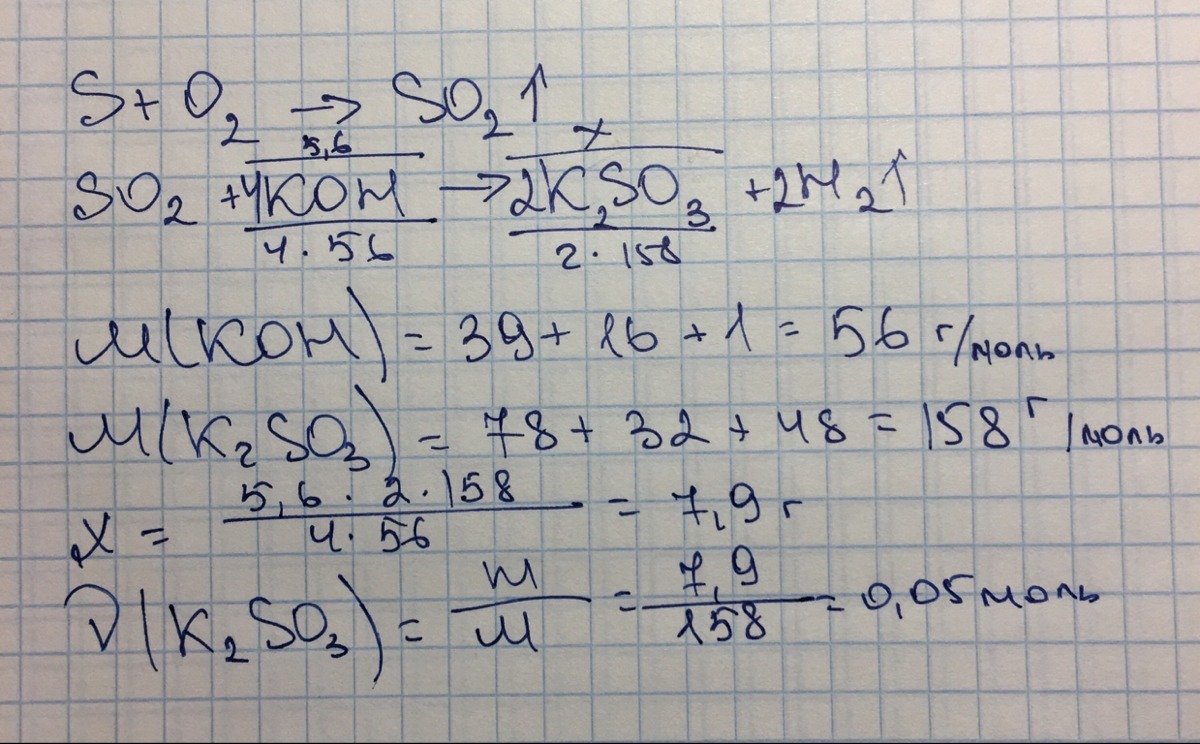 S + O₂ → SO₂↑
5,6 x
SO₂ + 4KOH → 2K₂SO₃ + 2H₂↑
4 · 56 2 · 158
M(KOH) = 39 + 16 + 1 = 56 г/моль
M(K₂SO₃) = 78 + 32 + 48 = 158 г/моль
x = 5,6 · 2 · 158 / 4 · 56 = 7,9 г
ν(K₂SO₃) = m / M = 7,9 / 158 = 0,05 моль